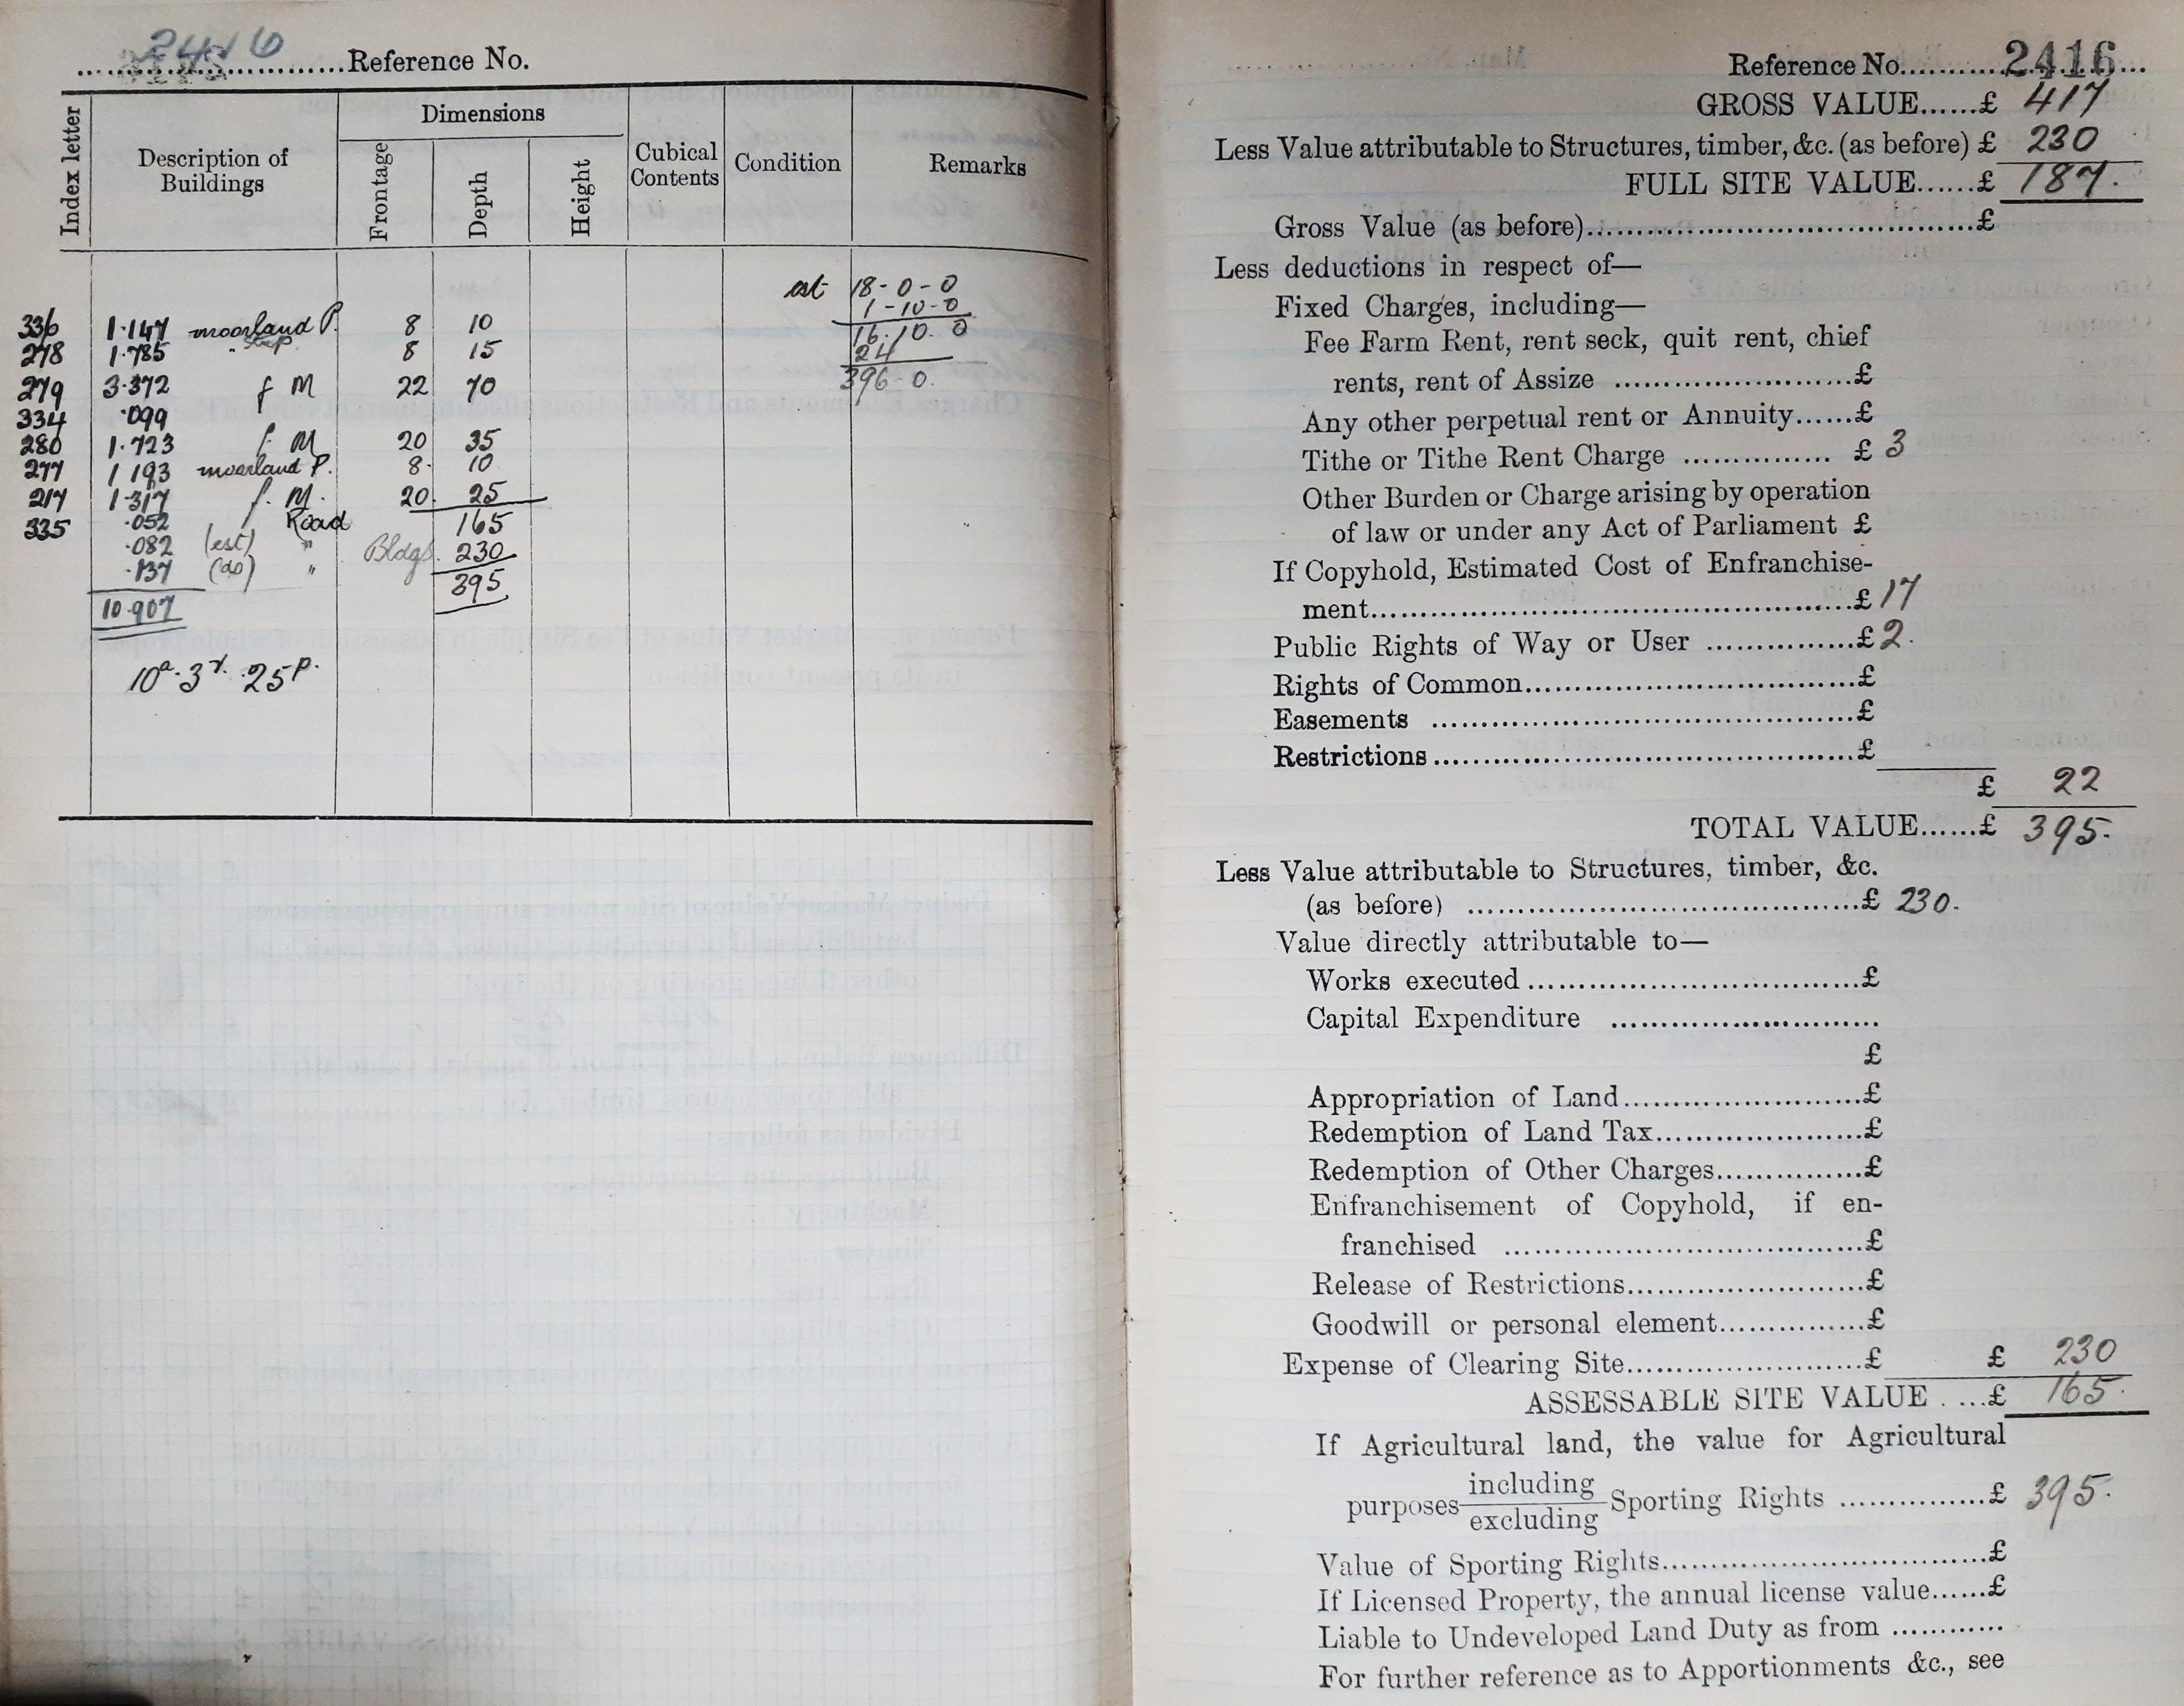 2416
Reference No.
Index letter
Description of Buildings
Dimensions
Frontage
Depth
Height
Cubical Contents
Condition
Remarks
est 18-0-0
1-10-0
336 1.147 moorland P. 8 10 16.10.0
278 1.785 8 15 24
279 3.372 f M 22 70 396-0.
334 .099
280 1.723 f. M 20 35
277 1 193 moorland P. 8. 10
217 1.317 f. M. 20. 25
335 .052 Road 165
.082 (est) " Bldgs. 230
.137 (do) " 395
10.907
10a. 3r. 25p.
Reference No. 2416
GROSS VALUE......£ 417
Less Value attributable to Structures, timber, &c. (as before) £ 230
FULL SITE VALUE......£ 187.
Gross Value (as before)..........£
Less deductions in respect of—
Fixed Charges, including—
Fee Farm Rent, rent seck, quit rent, chief
rents, rent of Assize ..........£
Any other perpetual rent or Annuity......£
Tithe or Tithe Rent Charge .......... £ 3
Other Burden or Charge arising by operation
of law or under any Act of Parliament £
If Copyhold, Estimated Cost of Enfranchise-
ment..........£ 17
Public Rights of Way or User ..........£ 2.
Rights of Common..........£
Easements ..........£
Restrictions..........£
£ 22
TOTAL VALUE......£ 395.
Less Value attributable to Structures, timber, &c.
(as before) ..........£ 230.
Value directly attributable to—
Works executed..........£
Capital Expenditure ..........
£
Appropriation of Land..........£
Redemption of Land Tax..........£
Redemption of Other Charges..........£
Enfranchisement of Copyhold, if en-
franchised ..........£
Release of Restrictions..........£
Goodwill or personal element..........£
Expense of Clearing Site..........£ £ 230
ASSESSABLE SITE VALUE ....£ 165.
If Agricultural land, the value for Agricultural
purposes including excluding Sporting Rights ..........£ 395.
Value of Sporting Rights..........£
If Licensed Property, the annual license value......£
Liable to Undeveloped Land Duty as from ..........
For further reference as to Apportionments &c., see